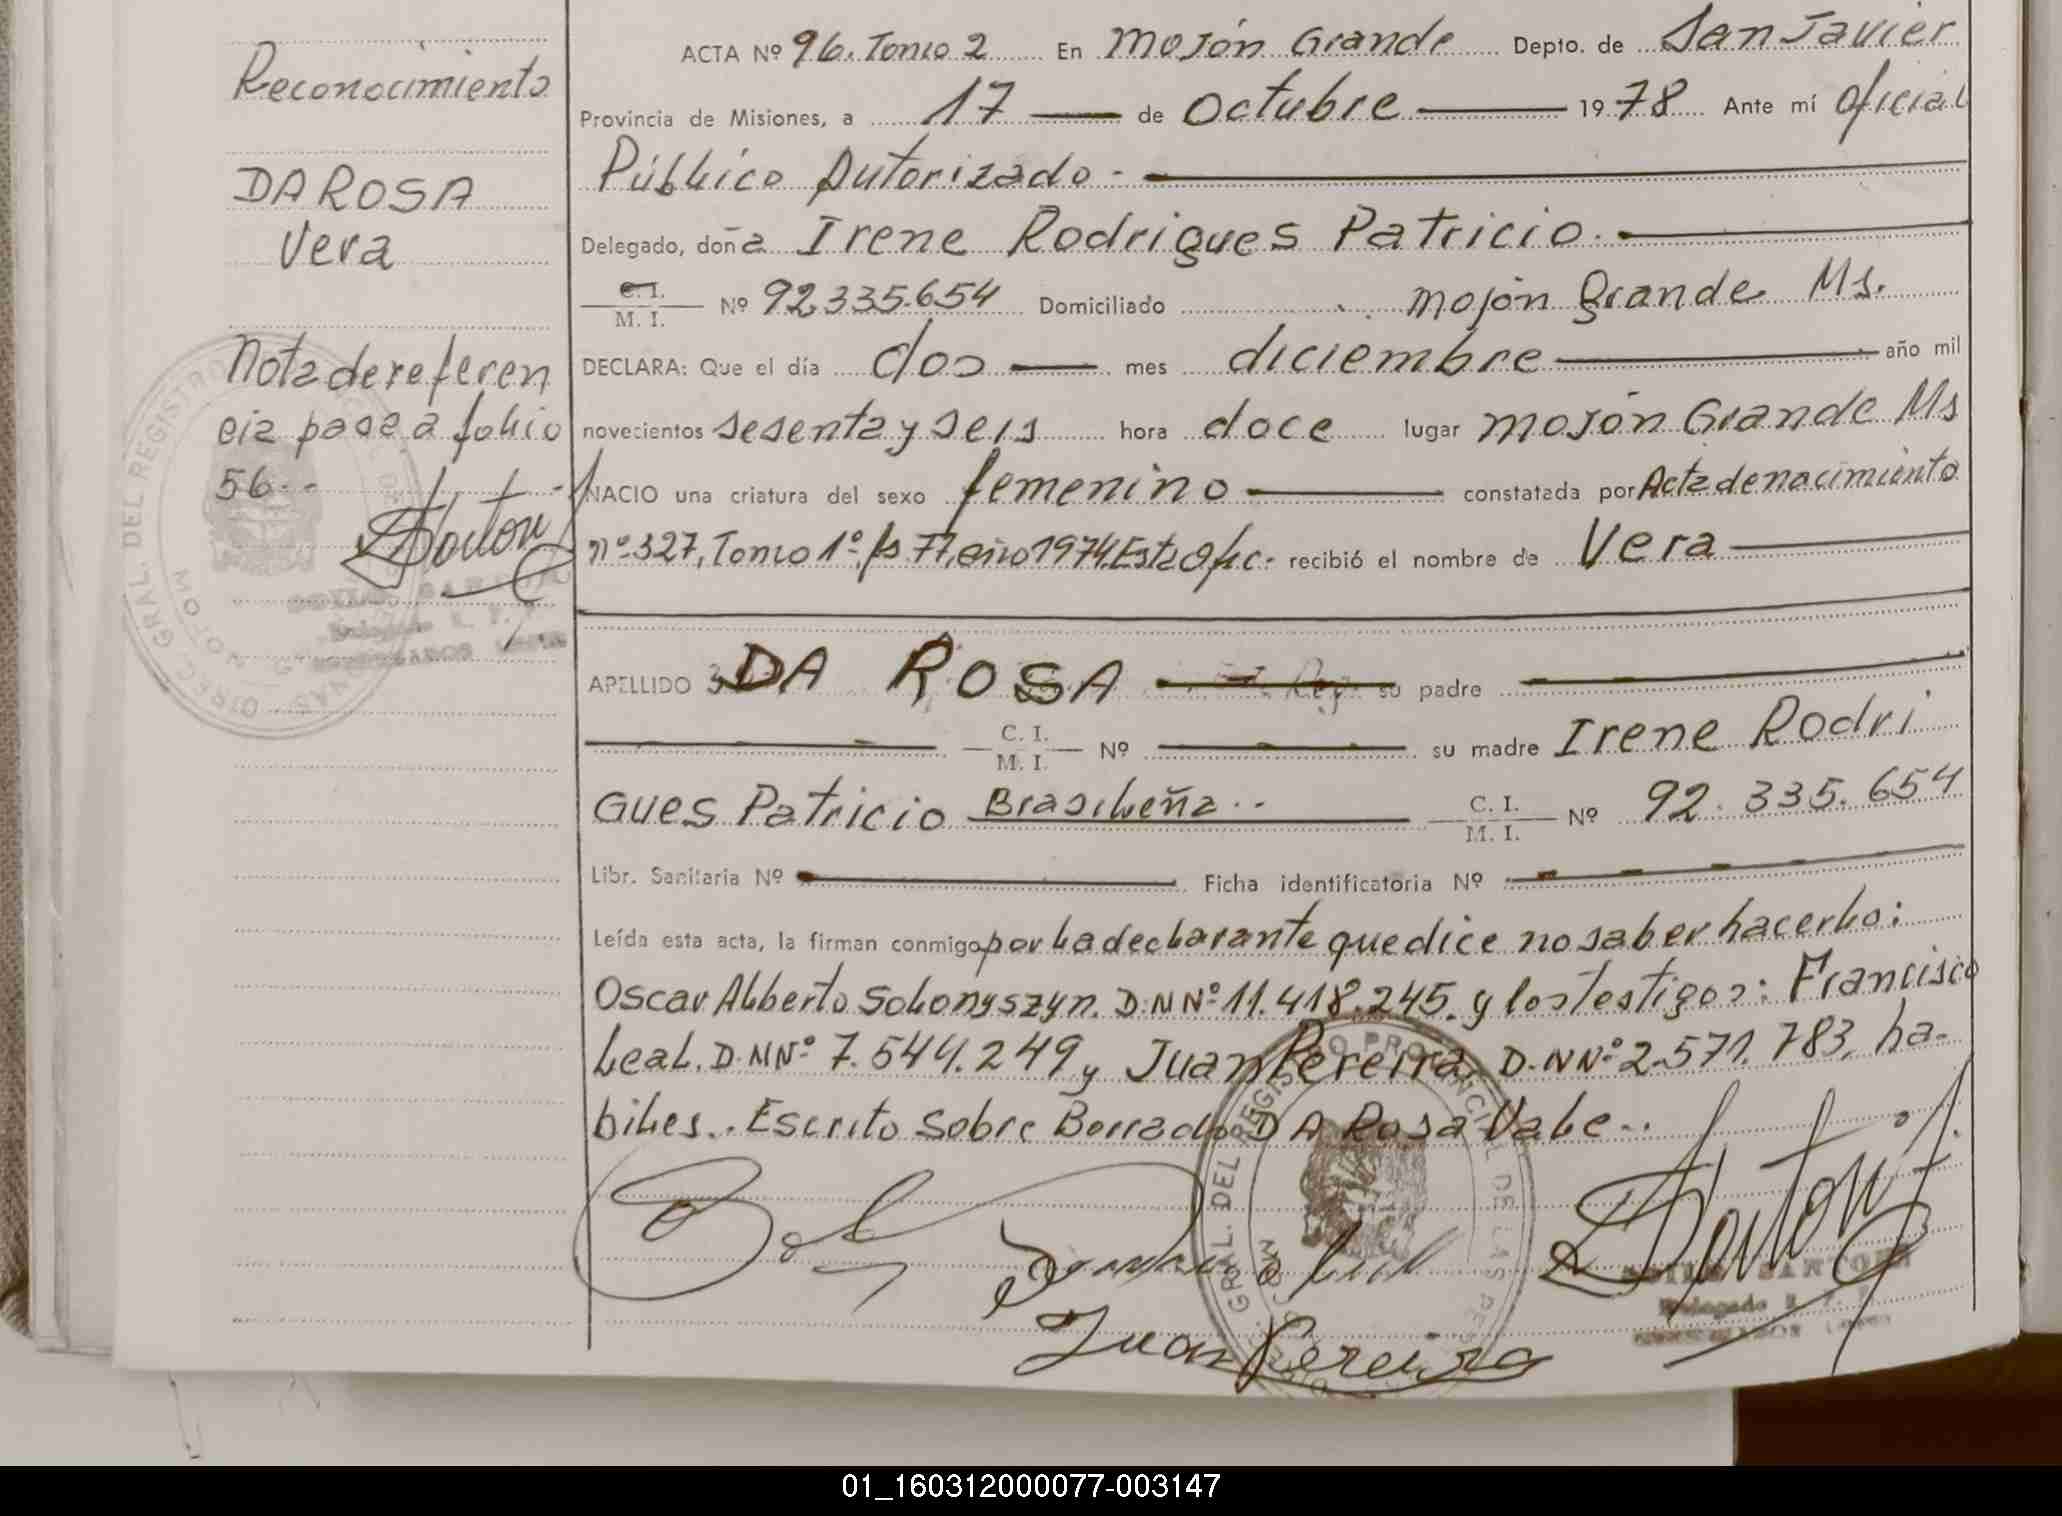 Reconocimiento
DA ROSA
Vera
Nota de referen
cia pase a folio
56..
ACTA Nº 96. Tomo 2 En Mojón Grande Depto. de San Javier
Provincia de Misiones, a 17 de Octubre 1978 Ante mí Oficial
Público Autorizado.
Delegado, doña Irene Rodrigues Patricio.
C. I.
M. I. Nº 92.335.654 Domiciliado Mojón Grande Ms.
DECLARA: Que el día dos mes diciembre año mil
novecientos sesenta y seis hora doce lugar Mojón Grande Ms
NACIO una criatura del sexo femenino constatada por Acta de nacimiento
nº 327, Tomo 1º. fs 77, año 1974. Esta Ofic. recibió el nombre de Vera
APELLIDO DA ROSA su padre
C. I.
M. I. Nº su madre Irene Rodri
gues Patricio Brasileña.. C. I.
M. I. Nº 92.335.654
Libr. Sanitaria Nº Ficha identificatoria Nº
Leída esta acta, la firman conmigo por la declarante que dice no saber hacerlo:
Oscar Alberto Solonyszyn. D.N Nº 11.418.245. y los testigos: Francisco
Leal. D.N Nº 7.544.249 y Juan Pereira, D.N Nº 2.571.783, ha-
biles.. Escrito Sobre Borrado DA Rosa Vale..
Juan Pereira
01_160312000077-003147